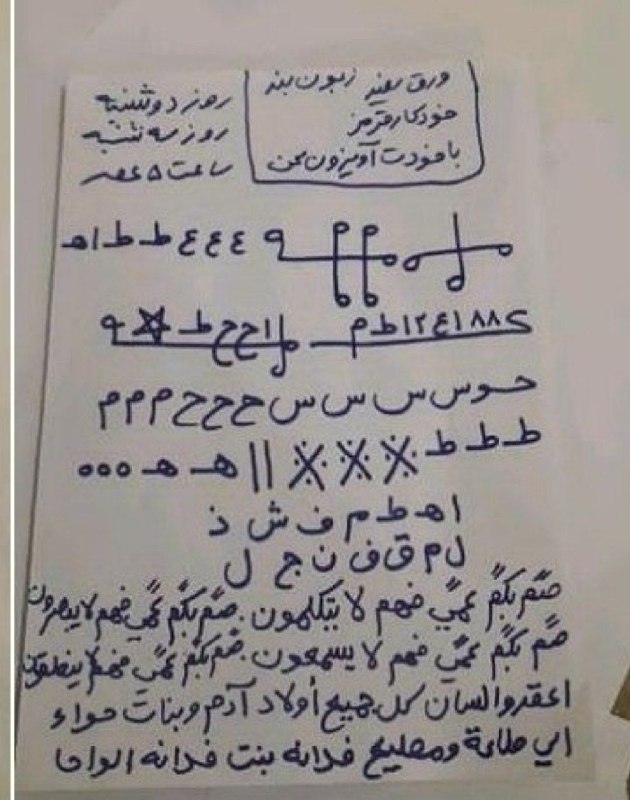 ورق سفید زبون بند
خودکار قرمز
با خودت آویزون کن
روز دوشنبه
روز سه شنبه
ساعت ۵ عصر
ع ع ع ط ط ا هـ
ح ح ط
حوس س س س ح ح ح م م م
ط ط ط ※ ※ ※ || هـ هـ ٥٥٥
ا هـ ط م ف ش ذ
ل م ق ف ن ج ل
صم بكم عمي فهم لا يتكلمون. صم بكم عمي فهم لا يبصرون
صم بكم عمي فهم لا يسمعون. صم بكم عمي فهم لا ينطقون
اعقدوا لسان كل جميع أولاد آدم وبنات حواء
الي طاعة ومطيع فلانه بنت فلانه الوحا